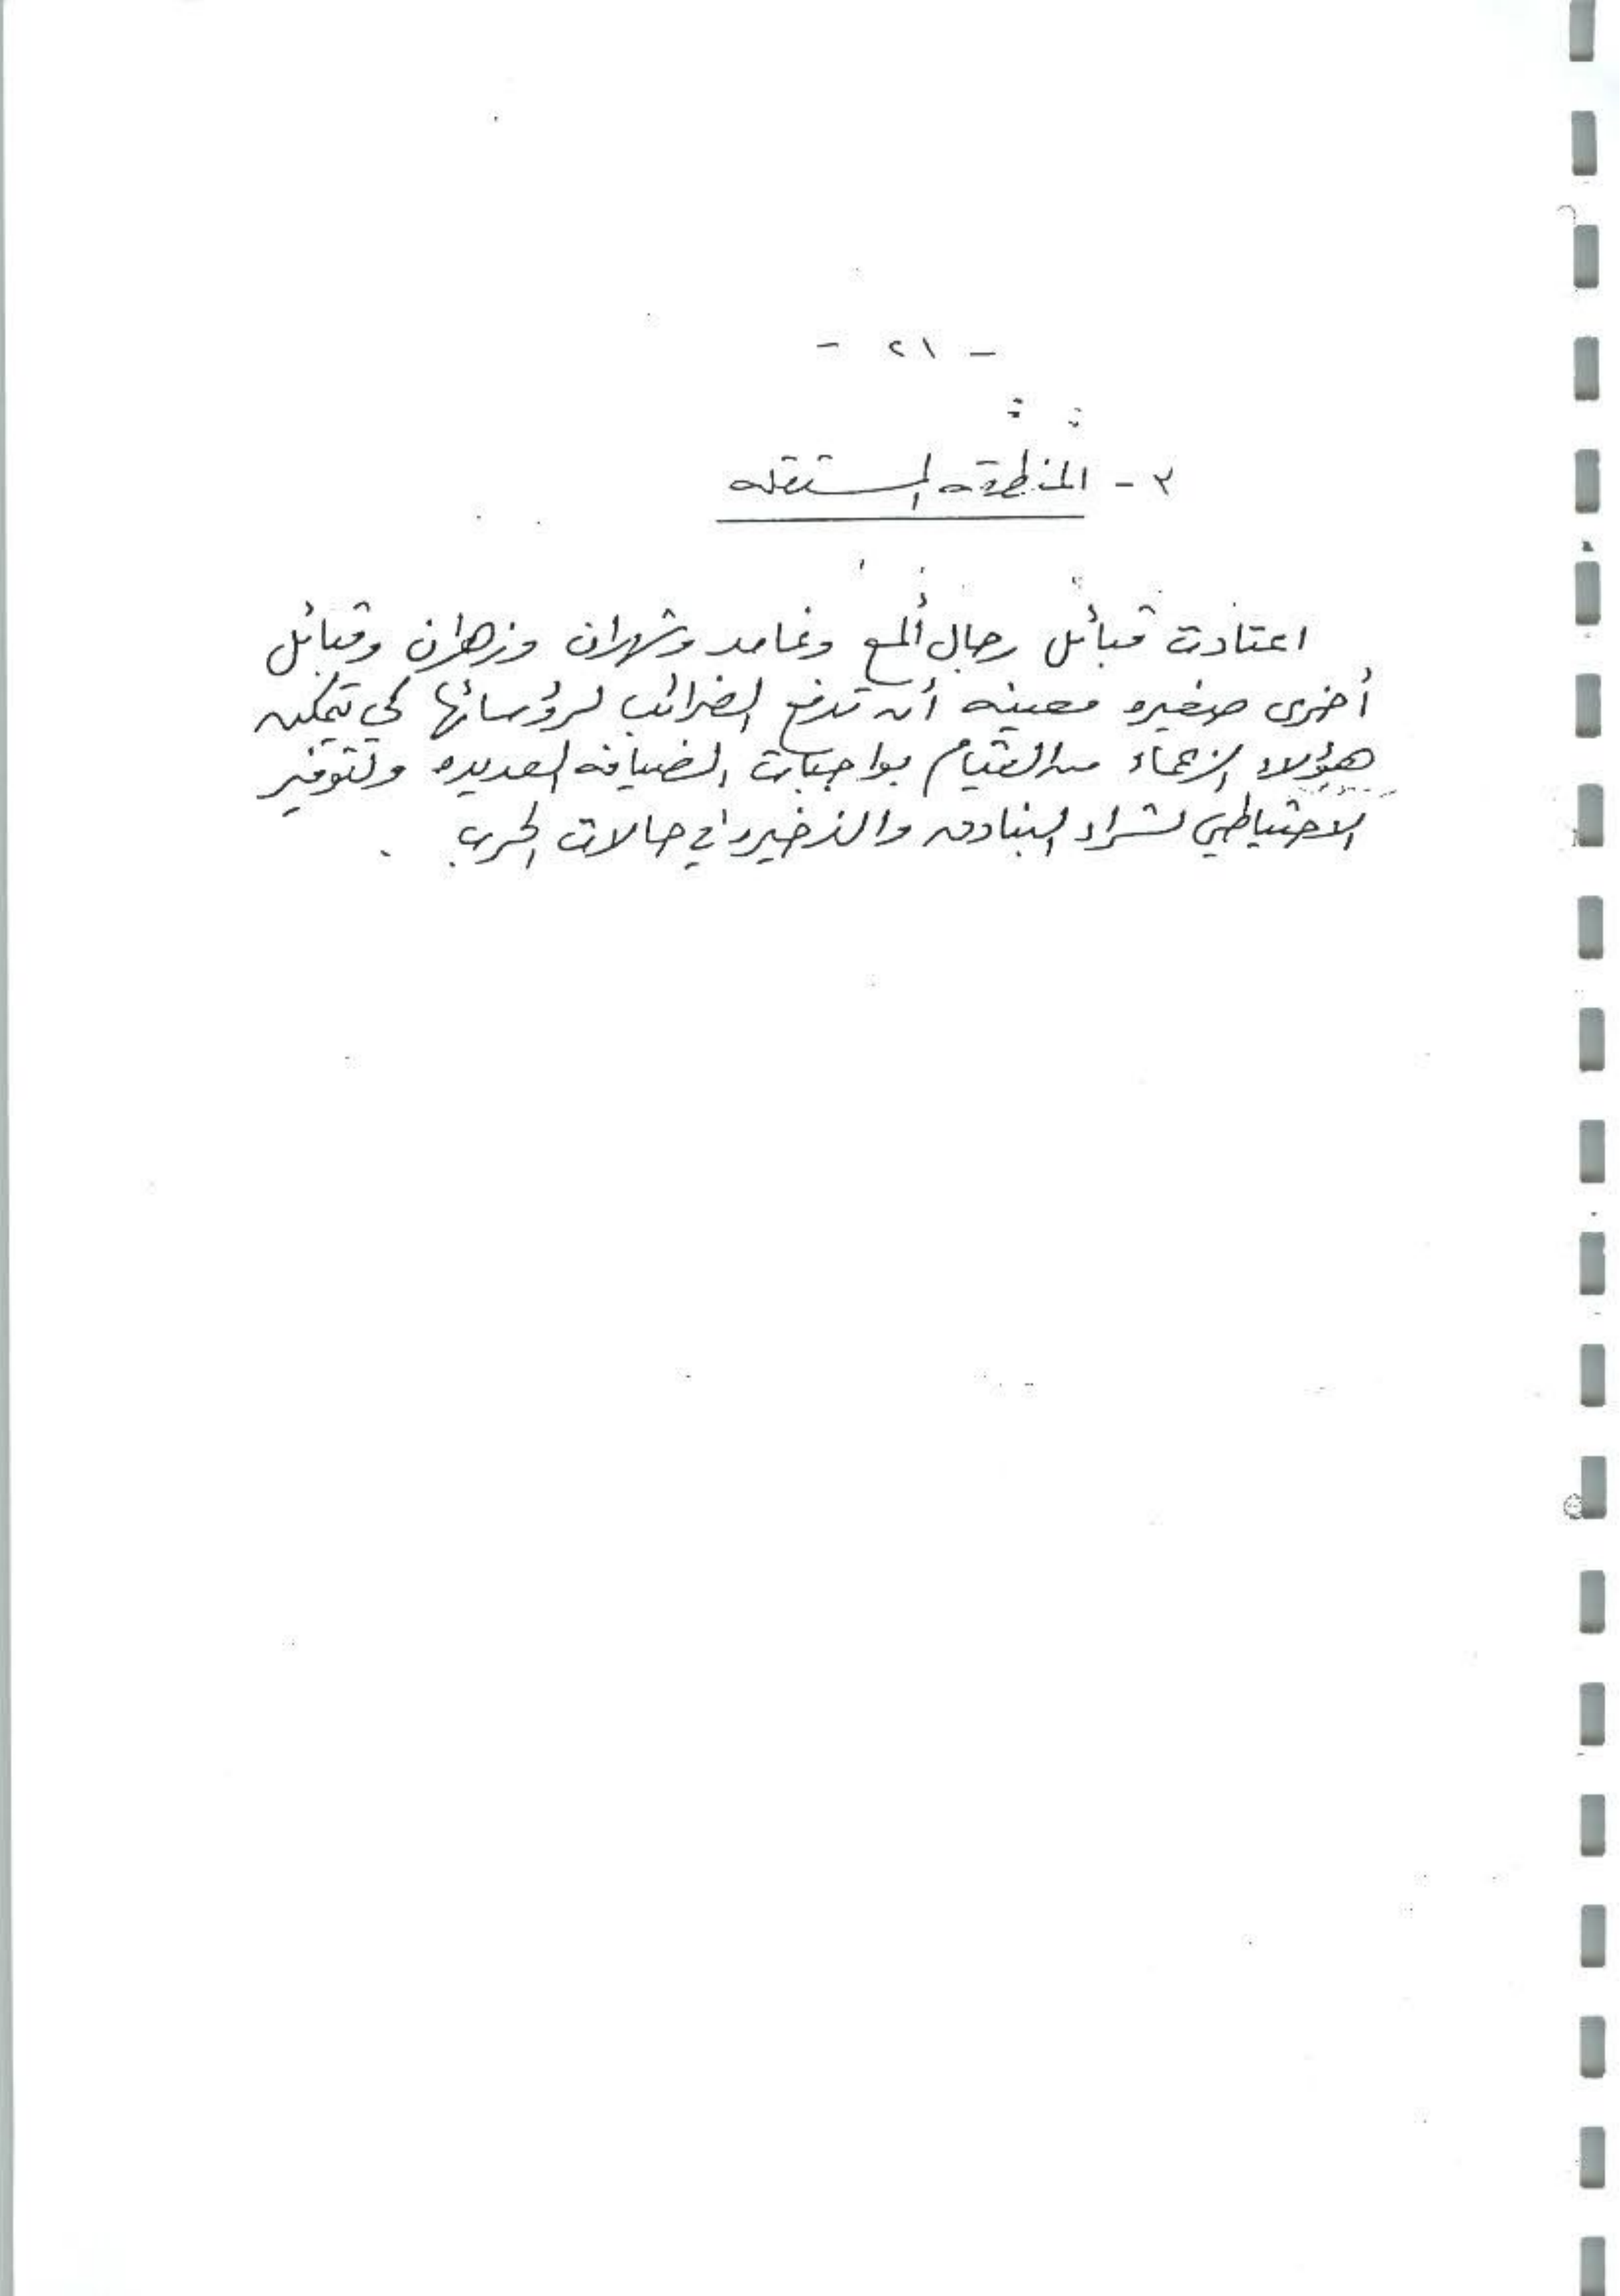 - ٢١ -
٣ - المنطقه المستقله
اعتادت قبائل رجال ألمع وغامد وشهران وزهران وقبائل
أخرى صغيره معينه أن تدفع الضرائب لرؤسائها كي يتمكن
هؤلاء الزعماء من القيام بواجبات الضيافه العديده ولتوفير
الاحتياطي لشراء البنادق والذخيره في حالات الحرب .